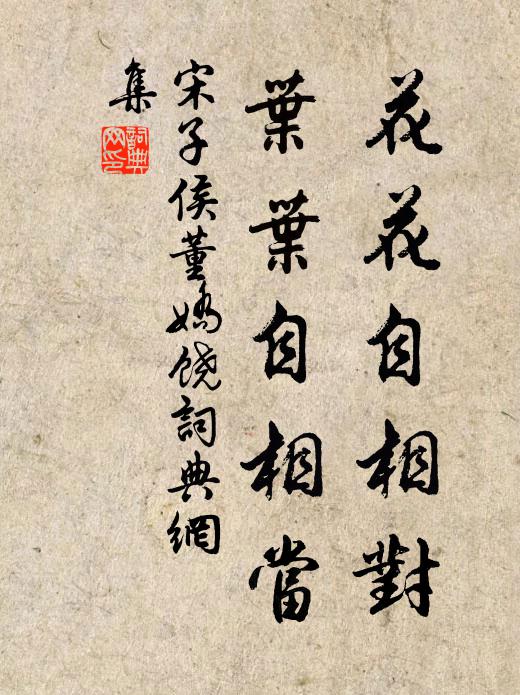 花花自相對
葉葉自相當
宋子侯董嬌饒詞典網
集
詞典
網印